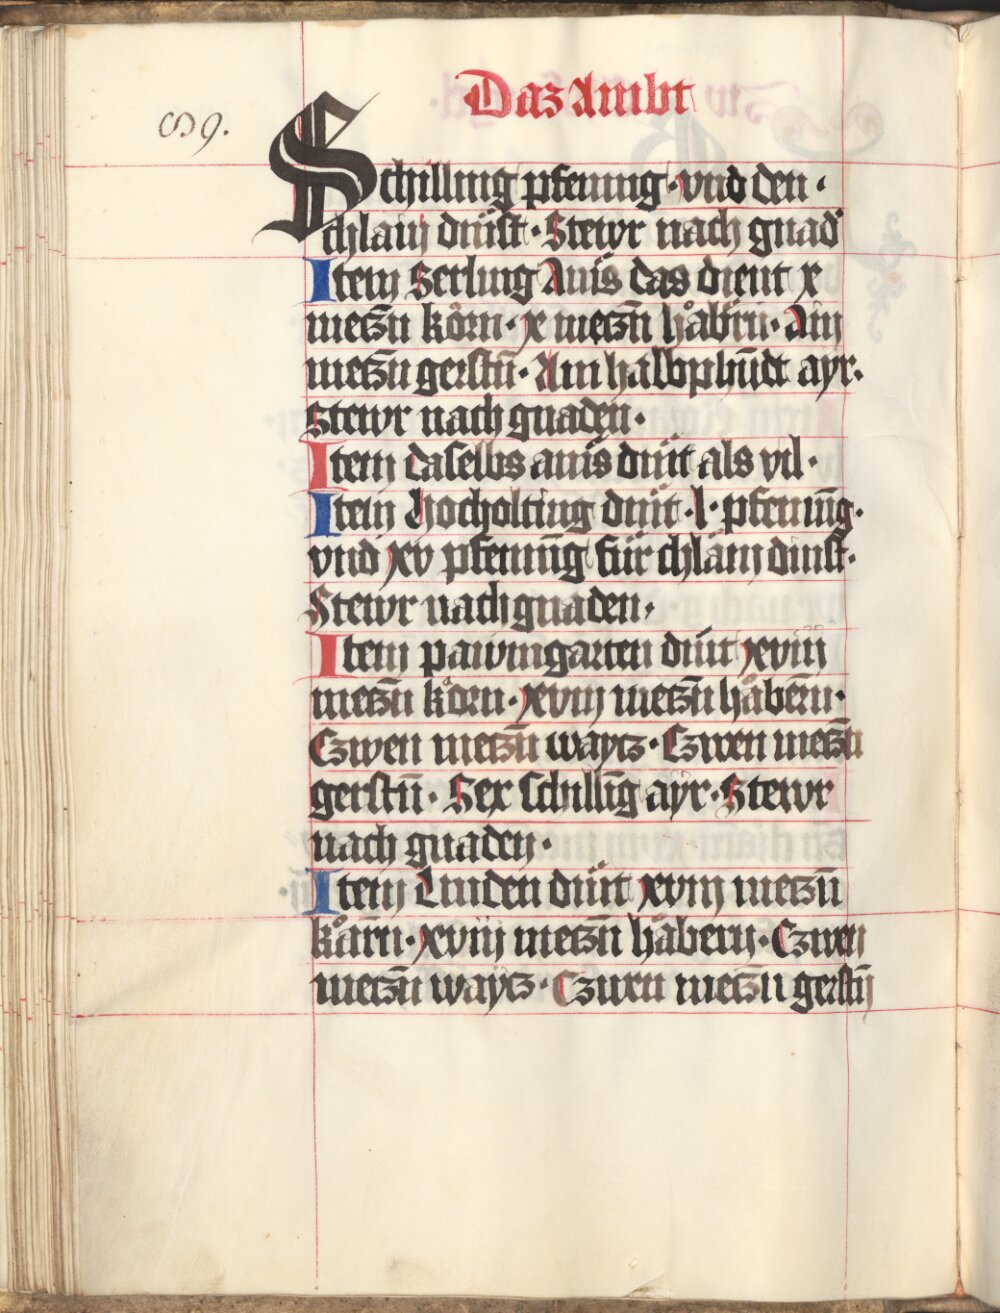 Daz Ambt
89.
Schilling pfening · vnd den ·
chlain dinst · Stewr nach gnad
Item Serling Auis das dient x
meczn̄ körn · x meczn̄ håbrn̄ · Ain
meczn̄ gerstn̄ · Ain halbphūdt ayr ·
Stewr nach gnaden ·
Item daselbs auis dint als vil ·
Item Hocholting dint · l · pfenning ·
vnd xv pfenning für chlain dinst ·
Stewr nach gnaden ·
Item pawmgarten dint xviii
meczn̄ körn · xviii meczn̄ håbern̄ ·
Czwen meczn̄ waytz · Czwen meczn̄
gerstn̄ · Sex schilling ayr · Stewr
nach gnaden ·
Item Linden dint xviii meczn̄
kårn̄ · xviii meczn̄ håbern · Czwen
meczn̄ waytz · Czwen meczn̄ gerstn̄